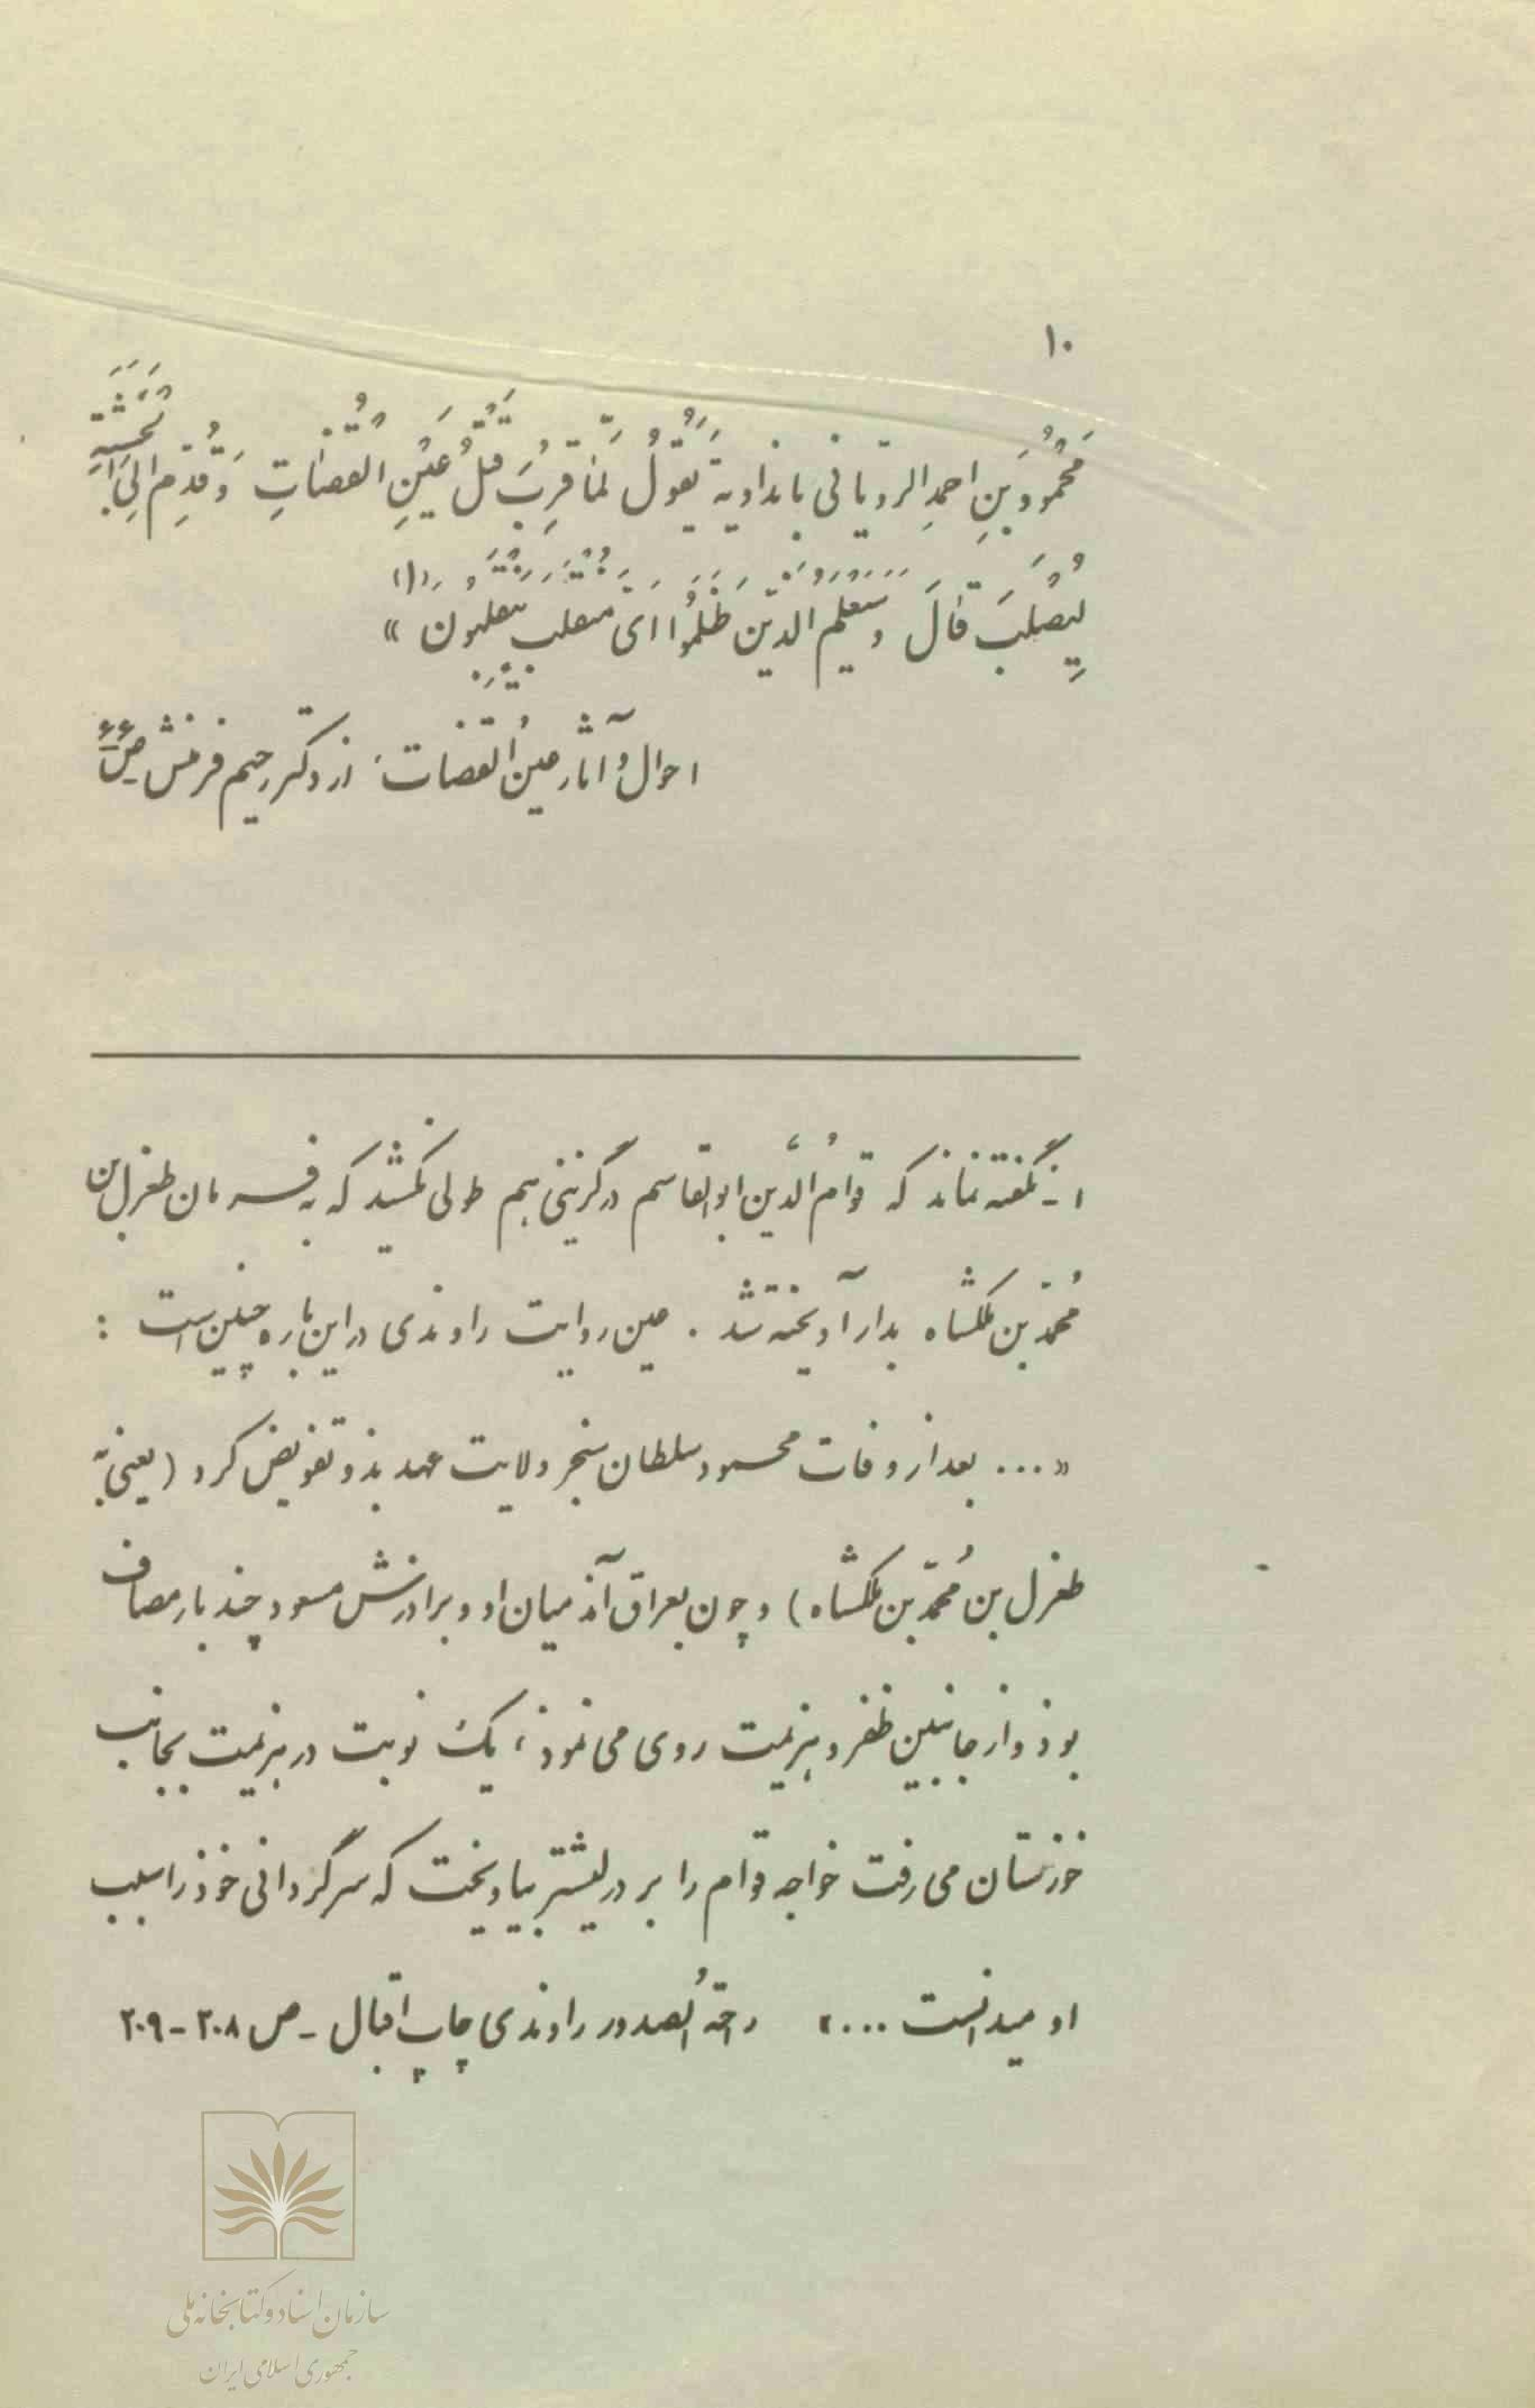 ۱۰
مَحْمُودَ بنِ احمدِ الرویانی باندادیة یَقولُ لَمّا قَرِبَ قَتلُ عَینِ القُضاتِ وَ قُدِّمَ اِلی الخَشَبَةِ
لِیُصْلَبَ قالَ وَسَیَعلَمُ الَّذینَ ظَلَمُوا اَیَّ مُنقَلَبٍ یَنقَلِبُونَ » (۱)
احوال و آثار عینُ القضات: از دکتر رحیم فرمنش ص ۶۶
۱ـ نگفته نماند که قوامُ الدّین ابوالقاسم درگزینی هم طولی نکشید که به فرمان طغرل بن
مُحمّد بن ملکشاه بدار آویخته شد . عین روایت راوندی در این باره چنین است :
«... بعد از وفات محمود سلطان سنجر ولایت عهد بذو تفویض کرد (یعنی به
طغرل بن مُحمّد بن ملکشاه) و چون بعراق آمذ میان او و برادرش مسعود چند بار مصاف
بوذ و از جانبین ظفر و هزیمت روی می نموذ، یک نوبت در هزیمت بجانب
خوزستان می رفت خواجه قوام را بر در لیشتر بیاویخت که سرگردانی خوذ را سبب
او میدانست ....» راحةُ الصدور راوندی چاپ اقبال ـ ص ۲۰۸-۲۰۹
سازمان اسناد و کتابخانه ملی
جمهوری اسلامی ایران